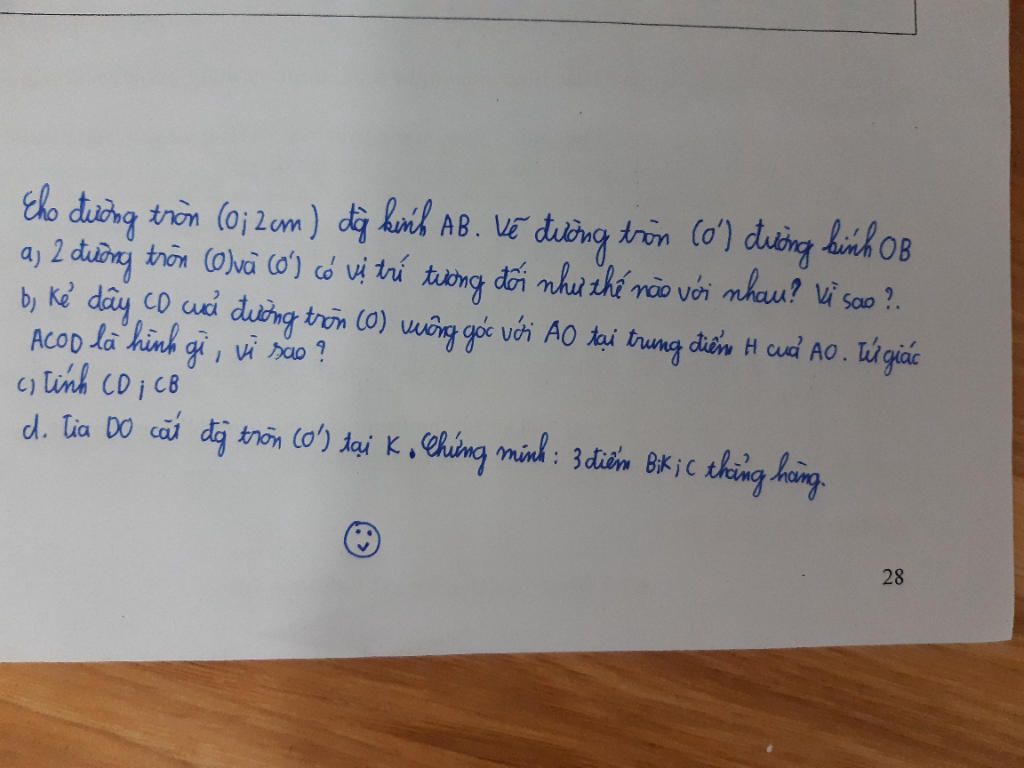 Cho đường tròn (O; 2cm) đg kính AB. Vẽ đường tròn (O') đường kính OB
a, 2 đường tròn (O) và (O') có vị trí tương đối như thế nào với nhau? Vì sao?.
b, Kẻ dây CD cuả đường tròn (O) vuông góc với AO tại trung điểm H cuả AO. Tứ giác
ACOD là hình gì, vì sao?
c, Tính CD; CB
d. Tia DO cắt đg tròn (O') tại K. Chứng minh: 3 điểm B;K;C thẳng hàng.
28